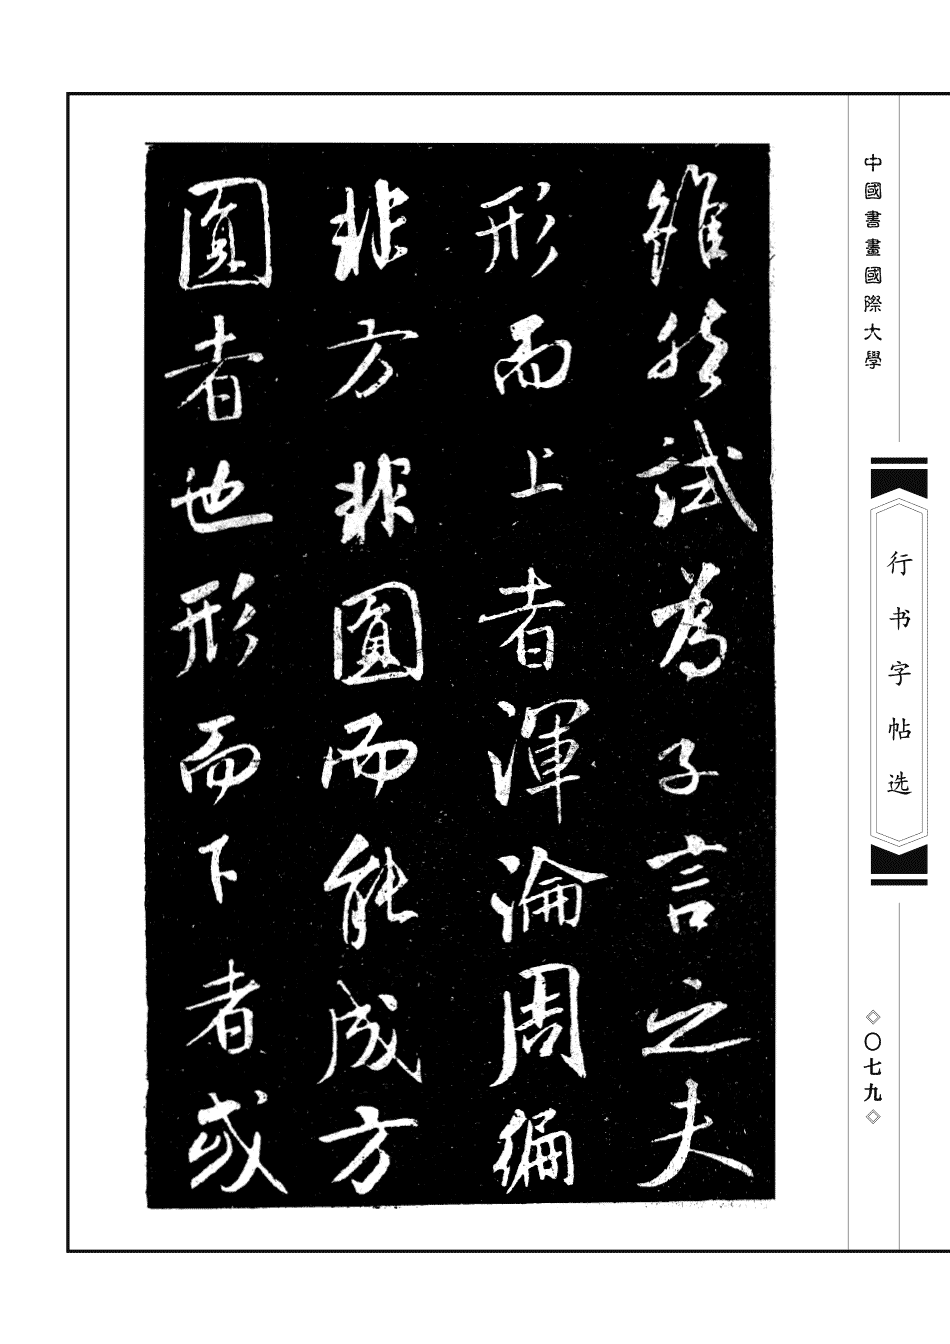 雖然試為子言之夫
形而上者渾淪周徧
非方非圓而能成方
圓者也形而下者或
中國書畫國際大學
行书字帖选
〇七九